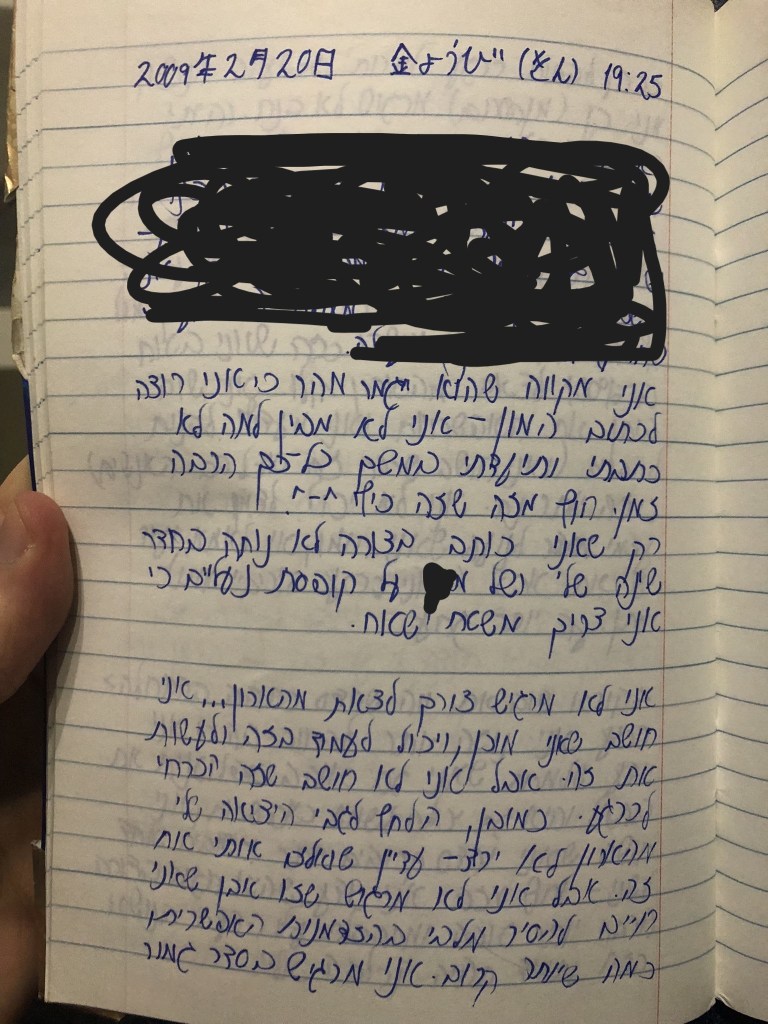 2009年2月20日 金ようび (きん) 19:25
אני מקווה שהלא ייגמר מהר כי אני רוצה
לכתוב המון - אני לא מבין למה לא
כתבתי ותיעדתי במשם כל-כך הרבה
זמן. חוץ מזה שזה כיף ^-^.
רק שאני כותב בצורה לא נוחה בחדר
שינה שלי ושל על קופסת נעליים כי
אני צריך משטח
אני לא מרגיש צורך לצאת מהארון... אני
חושב שאני מוכן, ויכול לעמוד בזה ולעשות
את זה. אבל אני לא חושב שזה הכרחי
לכרגע. כמובן, הלחץ לגבי היציאה שלי
מהארון לא ירד - עדיין שואלים אותי את
זה. אבל אני לא מרגיש שזו אבן שאני
חייב להסיר מלבי בהזדמנות האפשרית
כמה שיותר קרוב. אני מרגיש בסדר גמור